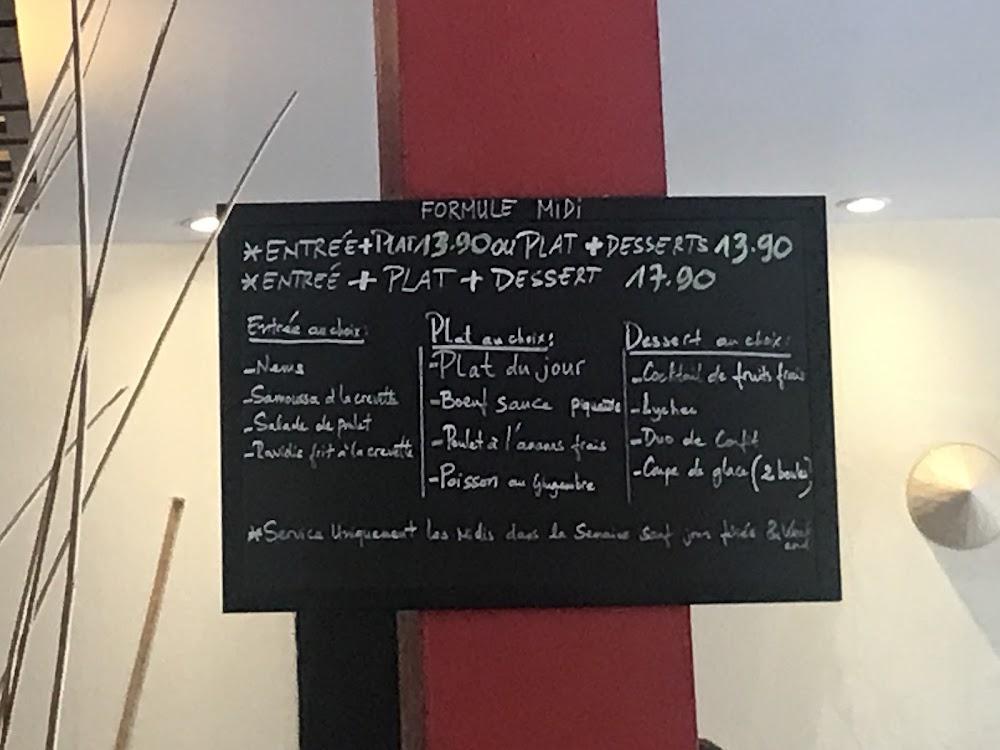 FORMULE MIDI
*ENTRÉE+PLAT 13.90 OU PLAT + DESSERTS 13.90
*ENTREÉ + PLAT + DESSERT 17.90
Entrée au choix:
-Nems
-Samoussa à la crevette
-Salade de poulet
-Raviolis frit à la crevette
Plat au choix:
-Plat du jour
-Boeuf sauce piquante
-Poulet à l'ananas frais
-Poisson au gingembre
Dessert au choix:
-Cocktail de fruits frais
-Lychee
-Duo de Confit
-Coupe de glace (2 boules)
*Service Uniquement les Midis dans la Semaine sauf jours fériés & Week
end